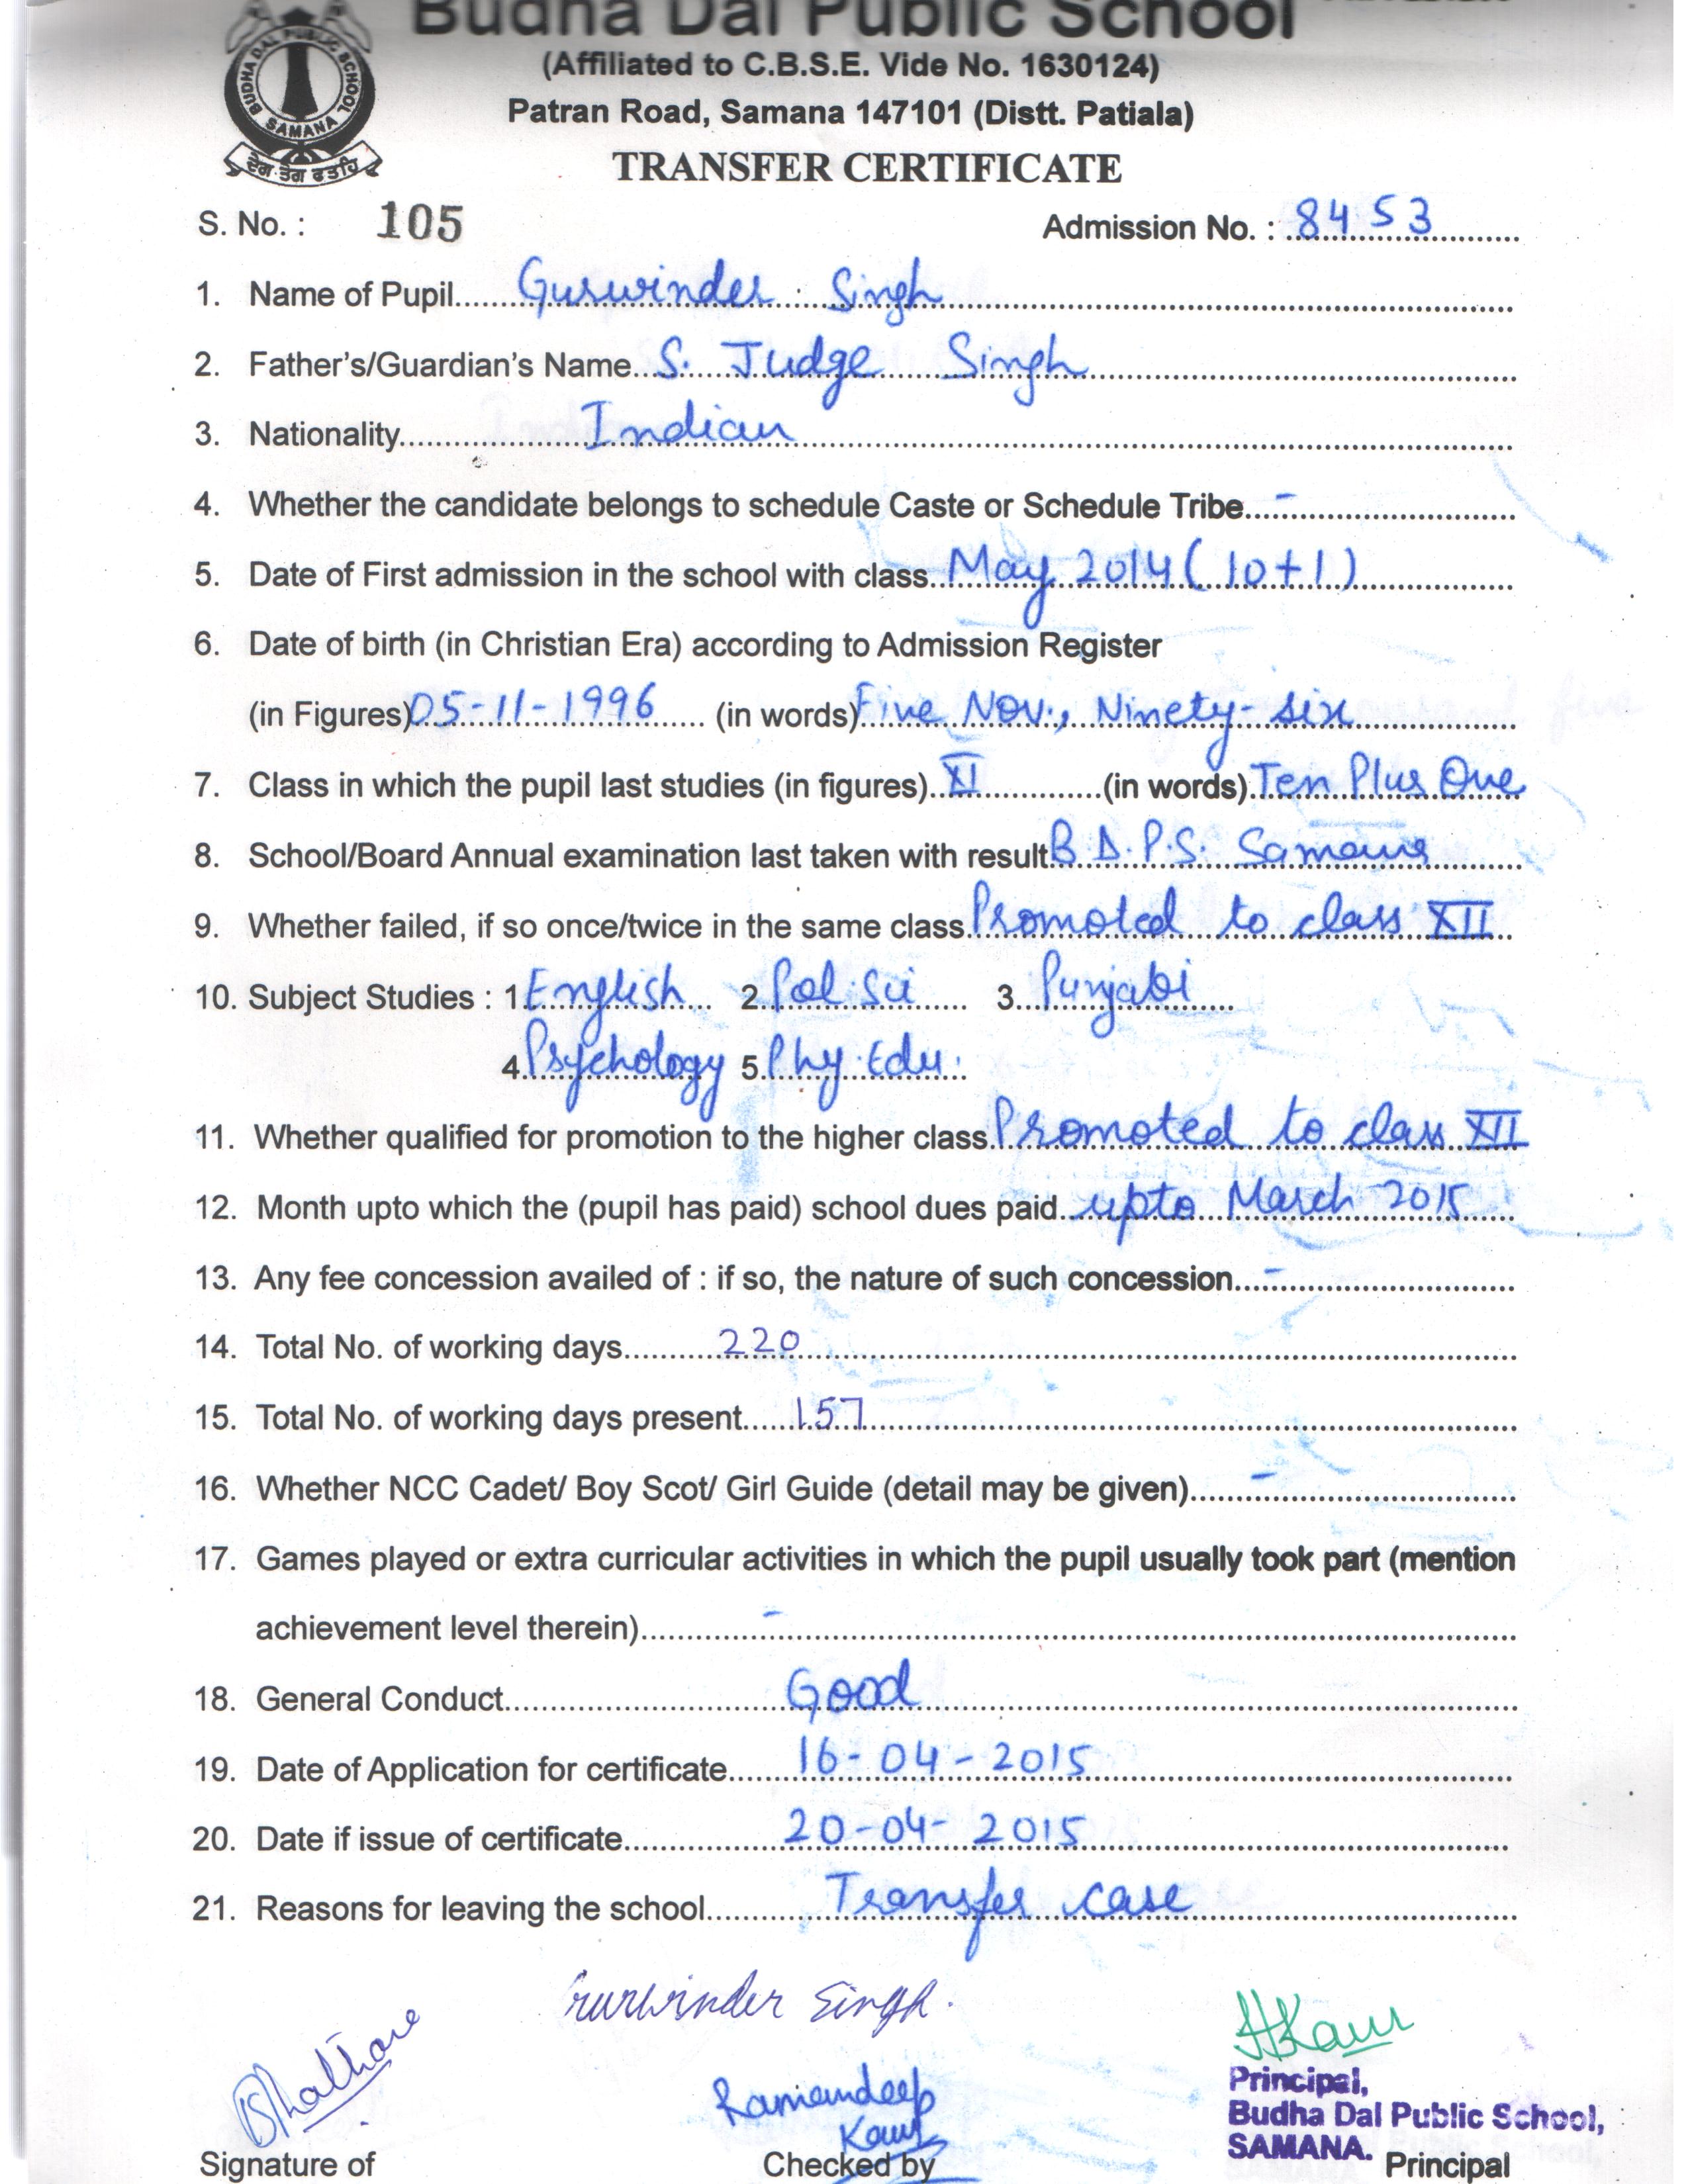 Budha Dal Public School
(Affiliated to C.B.S.E. Vide No. 1630124)
Patran Road, Samana 147101 (Distt. Patiala)
BUDHA DAL PUBLIC SCHOOL
SAMANA
ਦੇਗ ਤੇਗ ਫਤਹਿ
TRANSFER CERTIFICATE
S. No. : 105 Admission No. : 8453
1. Name of Pupil Gurwinder Singh
2. Father's/Guardian's Name S. Judge Singh
3. Nationality Indian
4. Whether the candidate belongs to schedule Caste or Schedule Tribe -
5. Date of First admission in the school with class May 2014 (10+1)
6. Date of birth (in Christian Era) according to Admission Register
(in Figures) 05-11-1996 (in words) Five Nov., Ninety-six
7. Class in which the pupil last studies (in figures) XI (in words) Ten Plus One
8. School/Board Annual examination last taken with result B.D.P.S. Samana
9. Whether failed, if so once/twice in the same class Promoted to class XII
10. Subject Studies : 1. English 2. Pol. Sci 3. Punjabi
4. Psychology 5. Phy. Edu.
11. Whether qualified for promotion to the higher class Promoted to class XII
12. Month upto which the (pupil has paid) school dues paid upto March 2015
13. Any fee concession availed of : if so, the nature of such concession -
14. Total No. of working days 220
15. Total No. of working days present 157
16. Whether NCC Cadet/ Boy Scot/ Girl Guide (detail may be given) -
17. Games played or extra curricular activities in which the pupil usually took part (mention
achievement level therein) -
18. General Conduct Good
19. Date of Application for certificate 16-04-2015
20. Date if issue of certificate 20-04-2015
21. Reasons for leaving the school Transfer case
Gurwinder Singh.
HKaur
Ramandeep
Kaur
Principal,
Budha Dal Public School,
SAMANA.
Signature of Checked by Principal